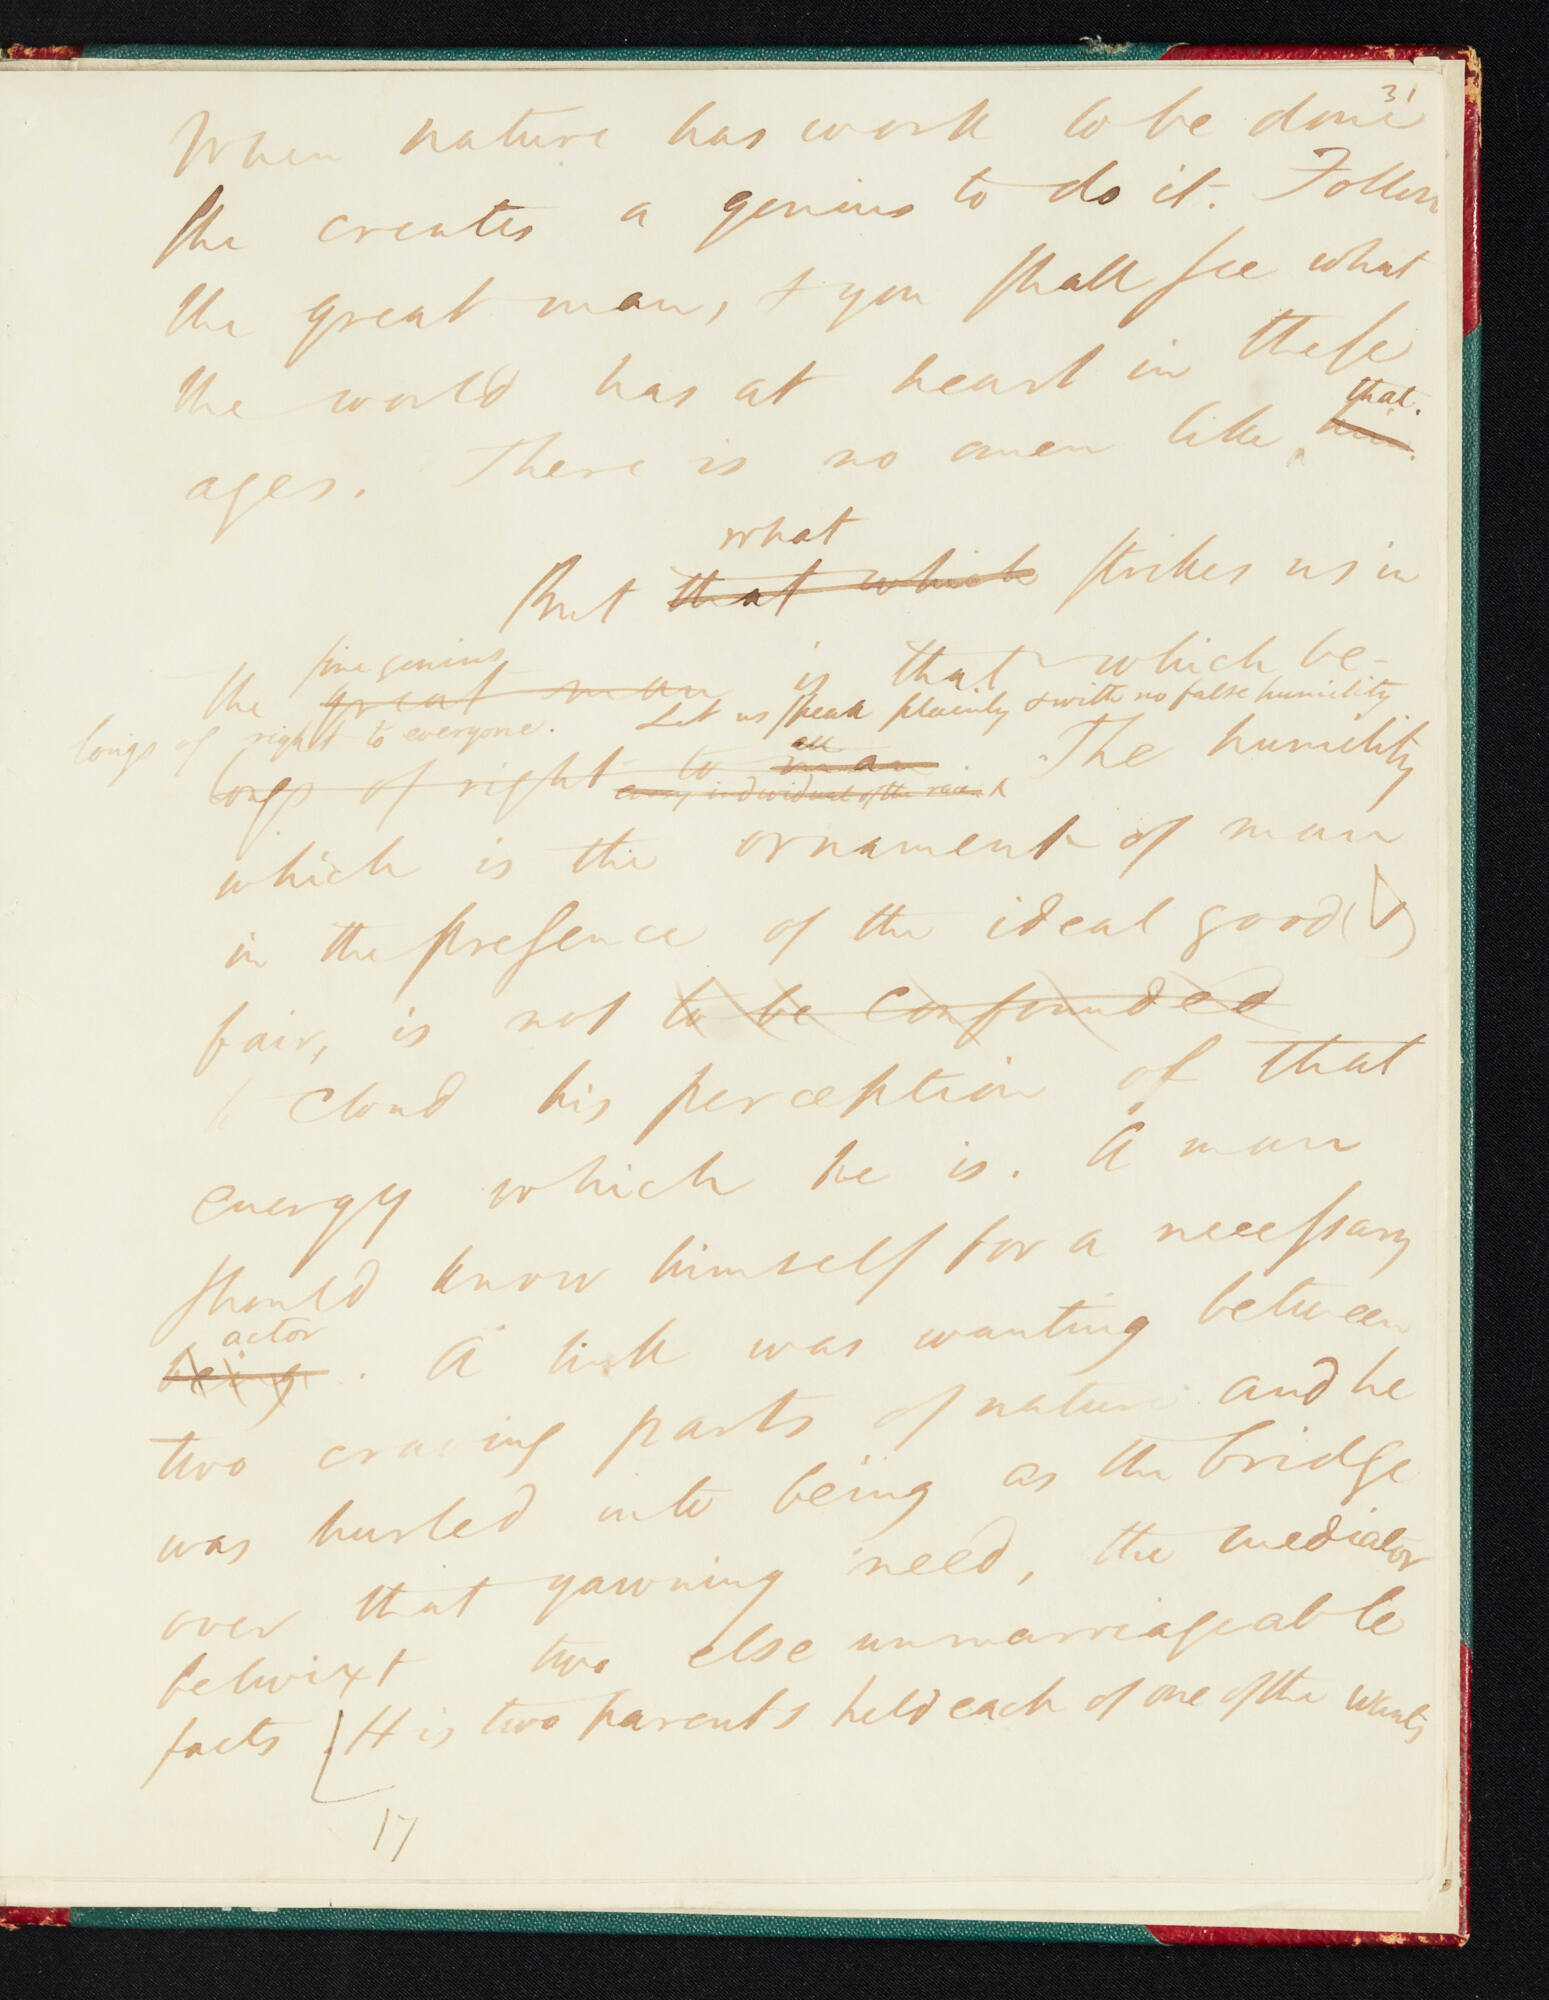 31
When nature has work to be done
she creates a genius to do it. Follow
the great man, & you shall see what
the world has at heart in these
ages. There is no omen like
that.
him.
what
But that which strikes us in
fine genius
the great man is that which be-
longs of right to everyone. Let us speak plainly & with no false humility
all
longs of right to man The humility
every individual of the race
which is the ornament of man
in the presence of the ideal good &
fair, is not to be confounded
to cloud his perception of that
energy which he is. A man
should know himself for a necessary
actor
being. A link was wanting between
two craving parts of nature and he
was hurled into being as the bridge
over that yawning need, the mediator
betwixt two else unmarriageable
facts. His two parents held each of one of the wants
17